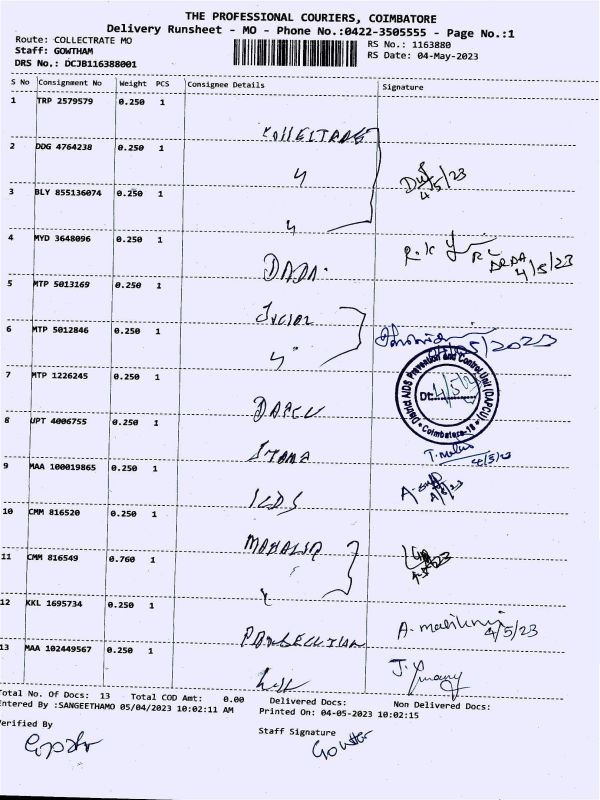 THE PROFESSIONAL COURIERS, COIMBATORE
Delivery Runsheet - MO - Phone No.:0422-3505555 - Page No.:1
Route: COLLECTRATE MO
Staff: GOWTHAM
DRS No.: DCJB116388001
RS No.: 1163880
RS Date: 04-May-2023
S No Consignment No Weight PCS Consignee Details Signature
1 TRP 2579579 0.250 1
COLLECTRATE
2 DDG 4764238 0.250 1
4/5/23
3 BLY 855136074 0.250 1
4 MYD 3648096 0.250 1
R.K
DRDA
4/5/23
5 MTP 5013169 0.250 1
6 MTP 5012846 0.250 1
04/05/2023
7 MTP 1226245 0.250 1
District AIDS Prevention and Control Unit (DAPCU)
Dt: 4/5/23
Coimbatore-18
DAPCU
8 UPT 4006755 0.250 1
4/5/23
9 MAA 100019865 0.250 1
ICDS
10 CMM 816520 0.250 1
11 CMM 816549 0.760 1
12 KKL 1695734 0.250 1
4/5/23
13 MAA 102449567 0.250 1
Total No. Of Docs: 13 Total COD Amt: 0.00 Delivered Docs: Non Delivered Docs:
Entered By :SANGEETHAMO 05/04/2023 10:02:11 AM Printed On: 04-05-2023 10:02:15
Verified By
Staff Signature